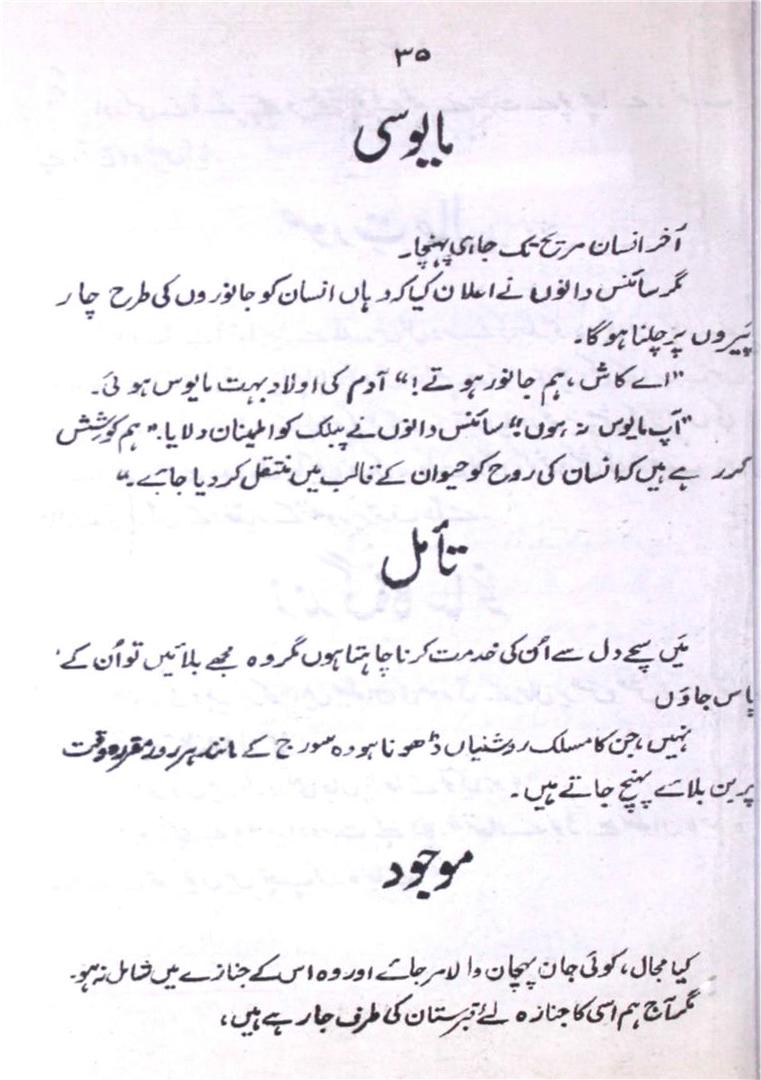 ۳۵
مایوسی
آخر انسان مریخ تک جا ہی پہنچا۔
مگر سائنس دانوں نے اعلان کیا کہ وہاں انسان کو جانوروں کی طرح چار
پَیروں پر چلنا ہوگا۔
"اے کاش، ہم جانور ہوتے!" آدم کی اولاد بہت مایوس ہوئی۔
"آپ مایوس نہ ہوں!" سائنس دانوں نے پبلک کو اطمینان دلایا۔ "ہم کوشِش
کر رہے ہیں کہ انسان کی روح کو حیوان کے قالب میں منتقل کر دیا جائے۔"
تأمل
مَیں سچے دل سے اُن کی خدمت کرنا چاہتا ہوں مگر وہ مجھے بلائیں تو اُن کے
پاس جاؤں
نہیں، جن کا مسلک روشنیاں ڈھونا ہو وہ سورج کے مانند ہر روز مقررہ وقت
پر بن بلائے پہنچ جاتے ہیں۔
موجود
کیا مجال، کوئی جان پہچان والا مر جائے اور وہ اس کے جنازے میں شامل نہ ہو۔
مگر آج ہم اسی کا جنازہ لئے قبرستان کی طرف جا رہے ہیں،